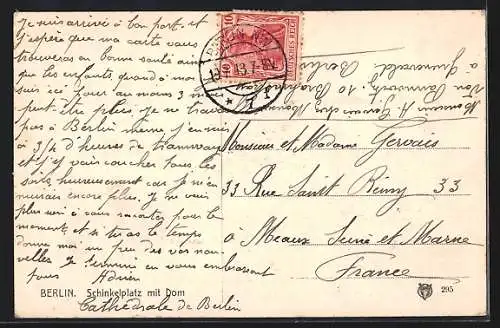 Je suis arrivé à bon port. et
j'espère que ma carte vous
trouveras en bonne santé ainsi
que les enfants quand à moi
suis ici pour au moins 3 m
peut être plus. je ne travaille
pas à Berlin même, j'en suis
à 3/4 d'heures de tramway
et j'y vais coucher tous les
soirs, heureusement car je m'en
encore plus. Je ne vois
plus rien à vous raconter pour le
moment et si tu as le temps
donne moi un peu de vos nou-
velles Je termine en vous embrassant
tous Adrien
BERLIN. Schinkelplatz mit Dom
Cathédrale de Berlin
10
DEUTSCHES REICH
BERLIN
Monsieur et Madame Gervais
33 Rue Saint Rémy 33
à Meaux Seine et Marne
France
295
Monsieur A. Gervais
10
à Grunewald. Berlin